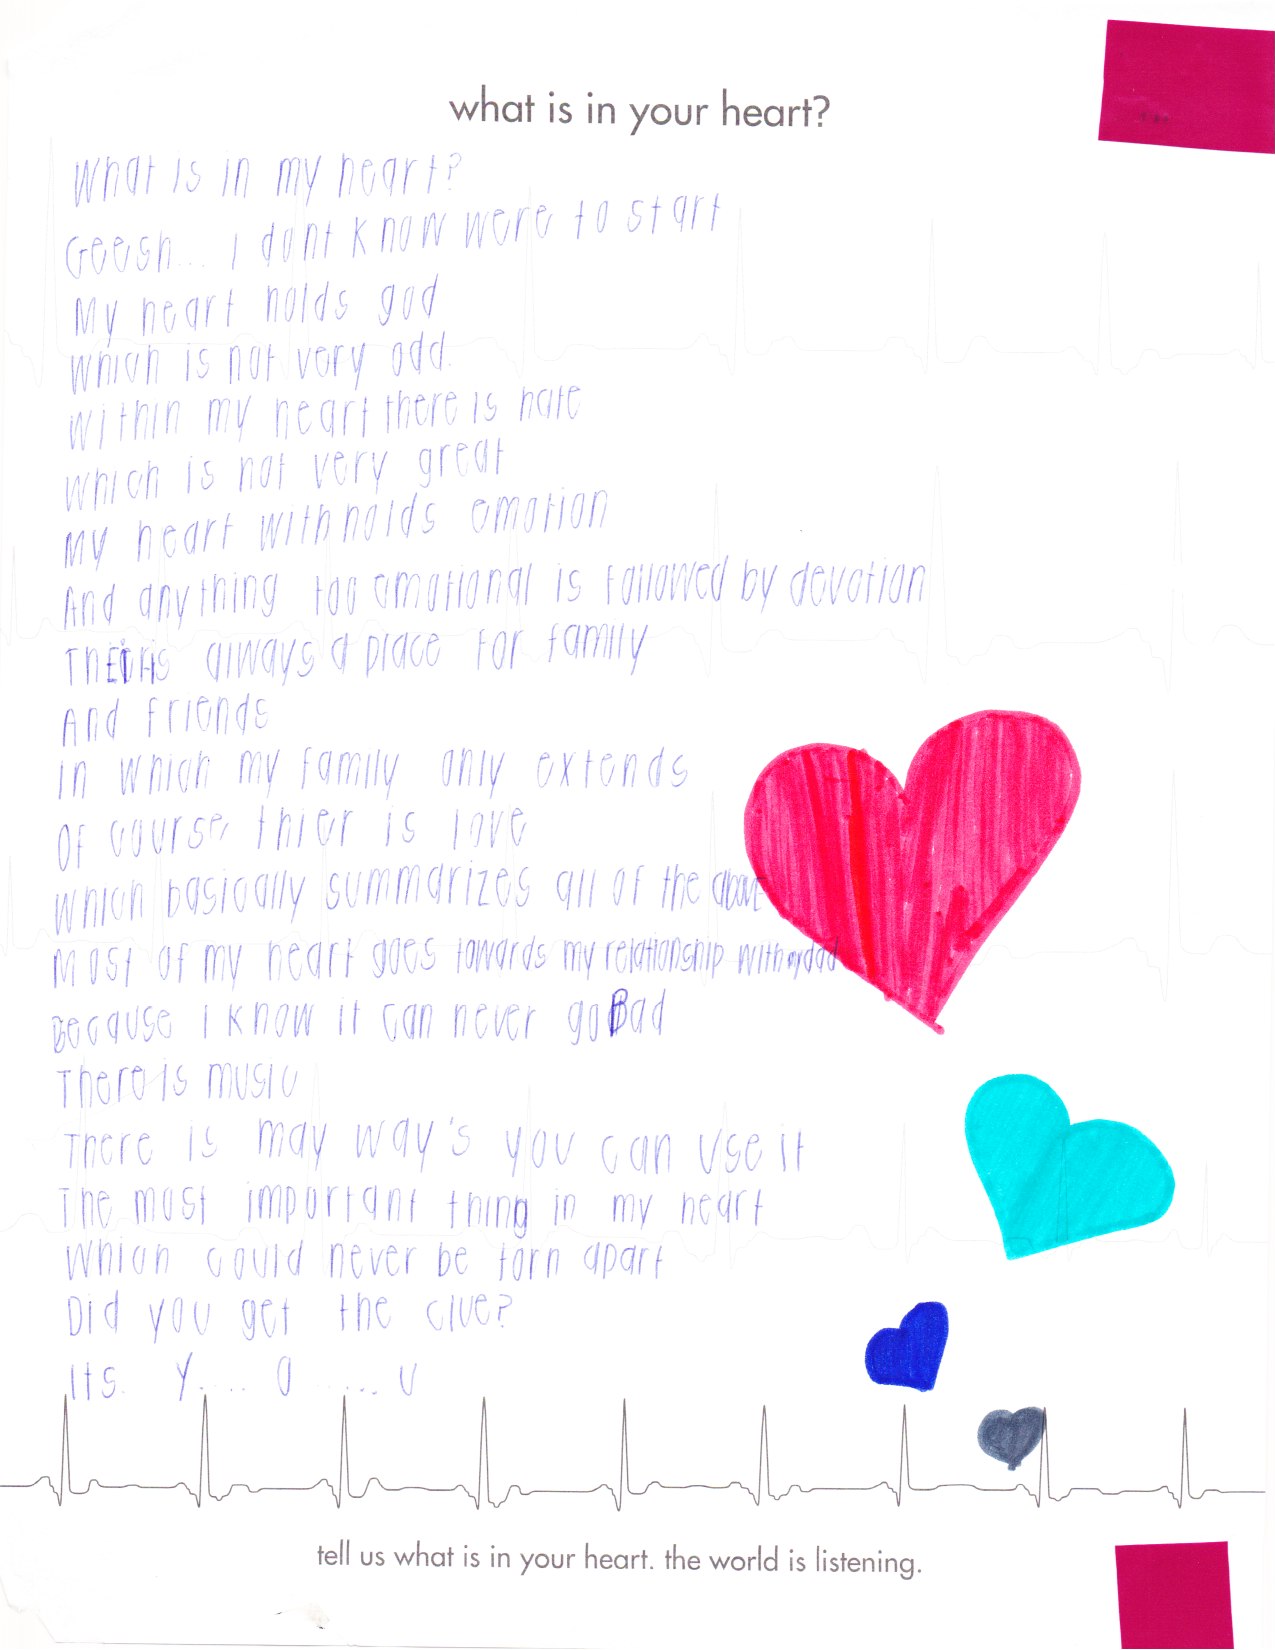 what is in your heart?
What is in my heart?
Geesh... I dont know were to start
My heart holds god
Which is not very odd.
Within my heart there is hate
Which is not very great
My heart withholds emotion
And anything too emotional is followed by devotion
always a place for family
And friends
In which my family only extends
Of course, thier is love
Which basically summarizes all of the above
Most of my heart goes towards my relationship with my dad
Because I know it can never go Bad
There is music
There is may way's you can use it
The most important thing in my heart
Which could never be torn apart
Did you get the clue?
Its. Y.... O ..... U
tell us what is in your heart. the world is listening.